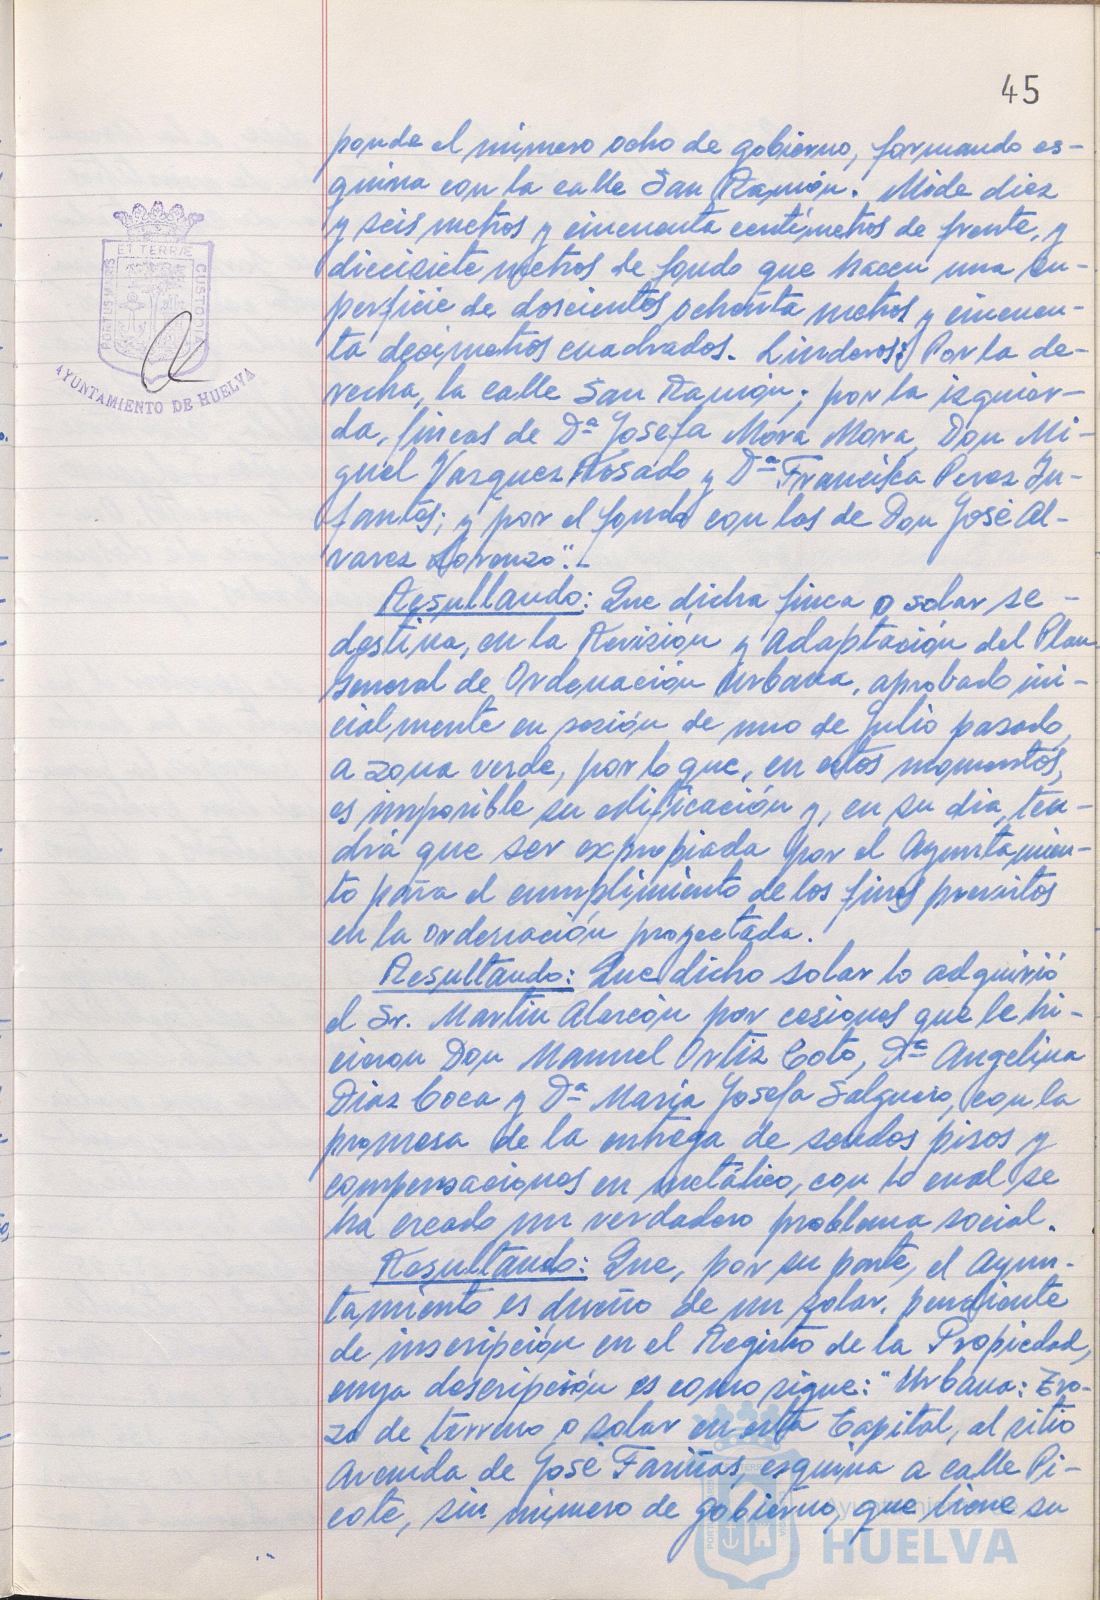 45
ponde el número ocho de gobierno, formando es-
quina con la calle San Ramón. Mide diez
y seis metros y cincuenta centímetros de frente, y
diecisiete metros de fondo que hacen una su-
perficie de doscientos ochenta metros y cincuen-
ta decímetros cuadrados. Linderos: Por la de-
recha, la calle San Ramón; por la izquier-
da, fincas de Dª Josefa Mora Mora, Don Mi-
guel Vazquez Rosado y Dª Francisca Perez In-
fantes; y por el fondo con las de Don José Al-
varez Lorenzo".-
Resultando: Que dicha finca o solar se -
destina, en la Revisión y Adaptación del Plan
General de Ordenación Urbana, aprobado ini-
cialmente en sesión de uno de Julio pasado,
a zona verde, por lo que, en estos momentos,
es imposible su edificación y, en su dia, ten-
drá que ser expropiada por el Ayuntamien-
to para el cumplimiento de los fines previstos
en la ordenación proyectada.
Resultando: Que dicho solar lo adquirió
el Sr. Martín Alarcón por cesiones que le hi-
cieron Don Manuel Ortiz Coto, Dª Angelina
Diaz Coca y Dª María Josefa Salguero, con la
promesa de la entrega de sendos pisos y
compensaciones en metálico, con lo cual se
ha creado un verdadero problema social.
Resultando: Que, por su parte, el Ayun-
tamiento es dueño de un solar, pendiente
de inscripción en el Registro de la Propiedad,
cuya descripción es como sigue: "Urbana: Tro-
zo de terreno o solar en esta Capital, al sitio
Avenida de José Fariñas, esquina a calle Pi-
cote, sin número de gobierno, que tiene su
ET TERRÆ
PORTUS MARIS
CUSTODIA
AYUNTAMIENTO DE HUELVA
Ayuntamiento de
HUELVA